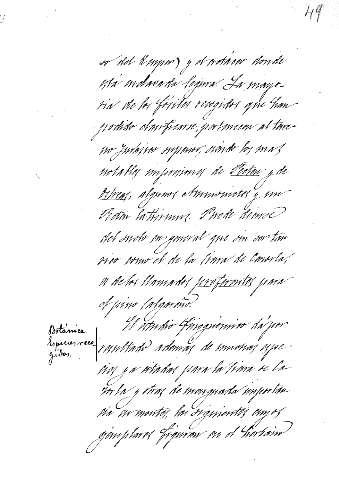 49
or del Vesper) y el cretáceo donde
está enclavada Segura. La mayo-
ria de los fósiles recogidos que han
podido clasificarse, pertenecen al terre-
no Jurásico superior, siendo los mas
notables impresiones de Pecten y de
Ostreas, algunos Ammonites y un
Pecten Puede decirse
del suelo en general que sin ser tan
rico como el de la Sierra de Cazorla,
es de los llamados preferentes para
el pino salgareño.
Botánica
Especies reco-
gidas.
El estudio Fitográfico dá por
resultado además de muchas espe-
cies ya citadas para la Sierra de Ca-
zorla y otras de menguada importan-
cia en montes, las siguientes cuyos
ejemplares figuran en el herbario